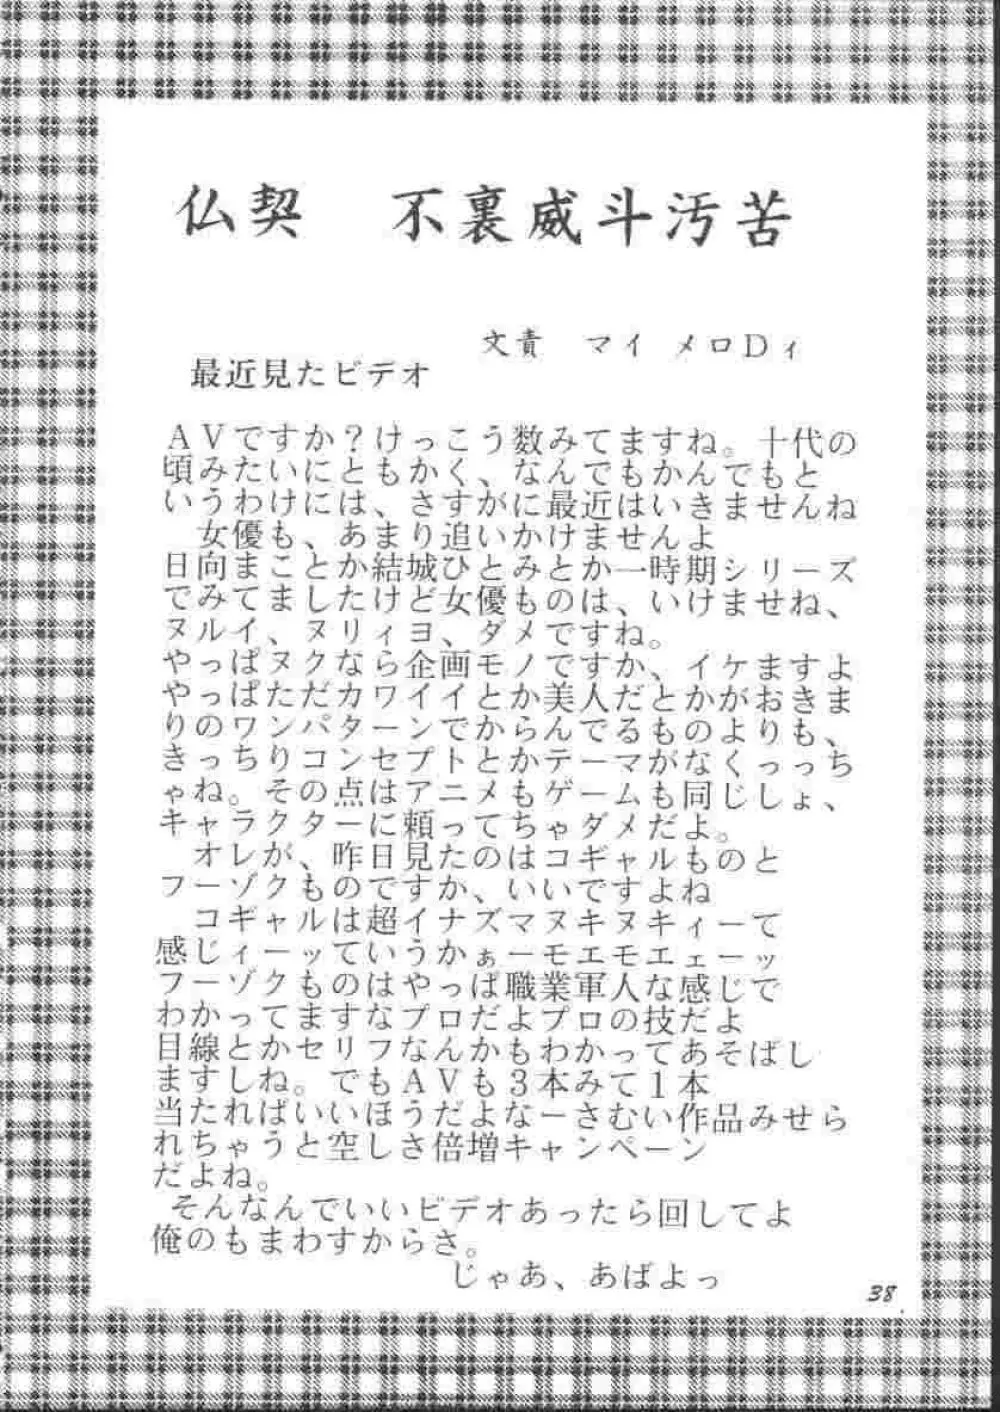 仏契　不裏威斗汚苦
文責　マイ メロDィ
最近見たビデオ
ＡＶですか？けっこう数みてますね。十代の
頃みたいにともかく、なんでもかんでもと
いうわけには、さすがに最近はいきませんね
　女優も、あまり追いかけませんよ
日向まことか結城ひとみとか一時期シリーズ
でみてましたけど女優ものは、いけませね、
ヌルイ、ヌリィヨ、ダメですね。
やっぱヌクなら企画モノですか、イケますよ
やっぱただカワイイとか美人だとかがおきま
りのワンパターンでからんでるものよりも、
きっちりコンセプトとかテーマがなくっっち
ゃね。その点はアニメもゲームも同じしょ、
キャラクターに頼ってちゃダメだよ。
　オレが、昨日見たのはコギャルものと
フーゾクものですか、いいですよね
　コギャルは超イナズマヌキヌキィーて
感じィーッていうかぁーモエモエェーッ
フーゾクものはやっぱ職業軍人な感じで
わかってますなプロだよプロの技だよ
目線とかセリフなんかもわかってあそばし
ますしね。でもＡＶも３本みて１本
当たればいいほうだよなーさむい作品みせら
れちゃうと空しさ倍増キャンペーン
だよね。
　そんなんでいいビデオあったら回してよ
俺のもまわすからさ。
じゃあ、あばよっ
38